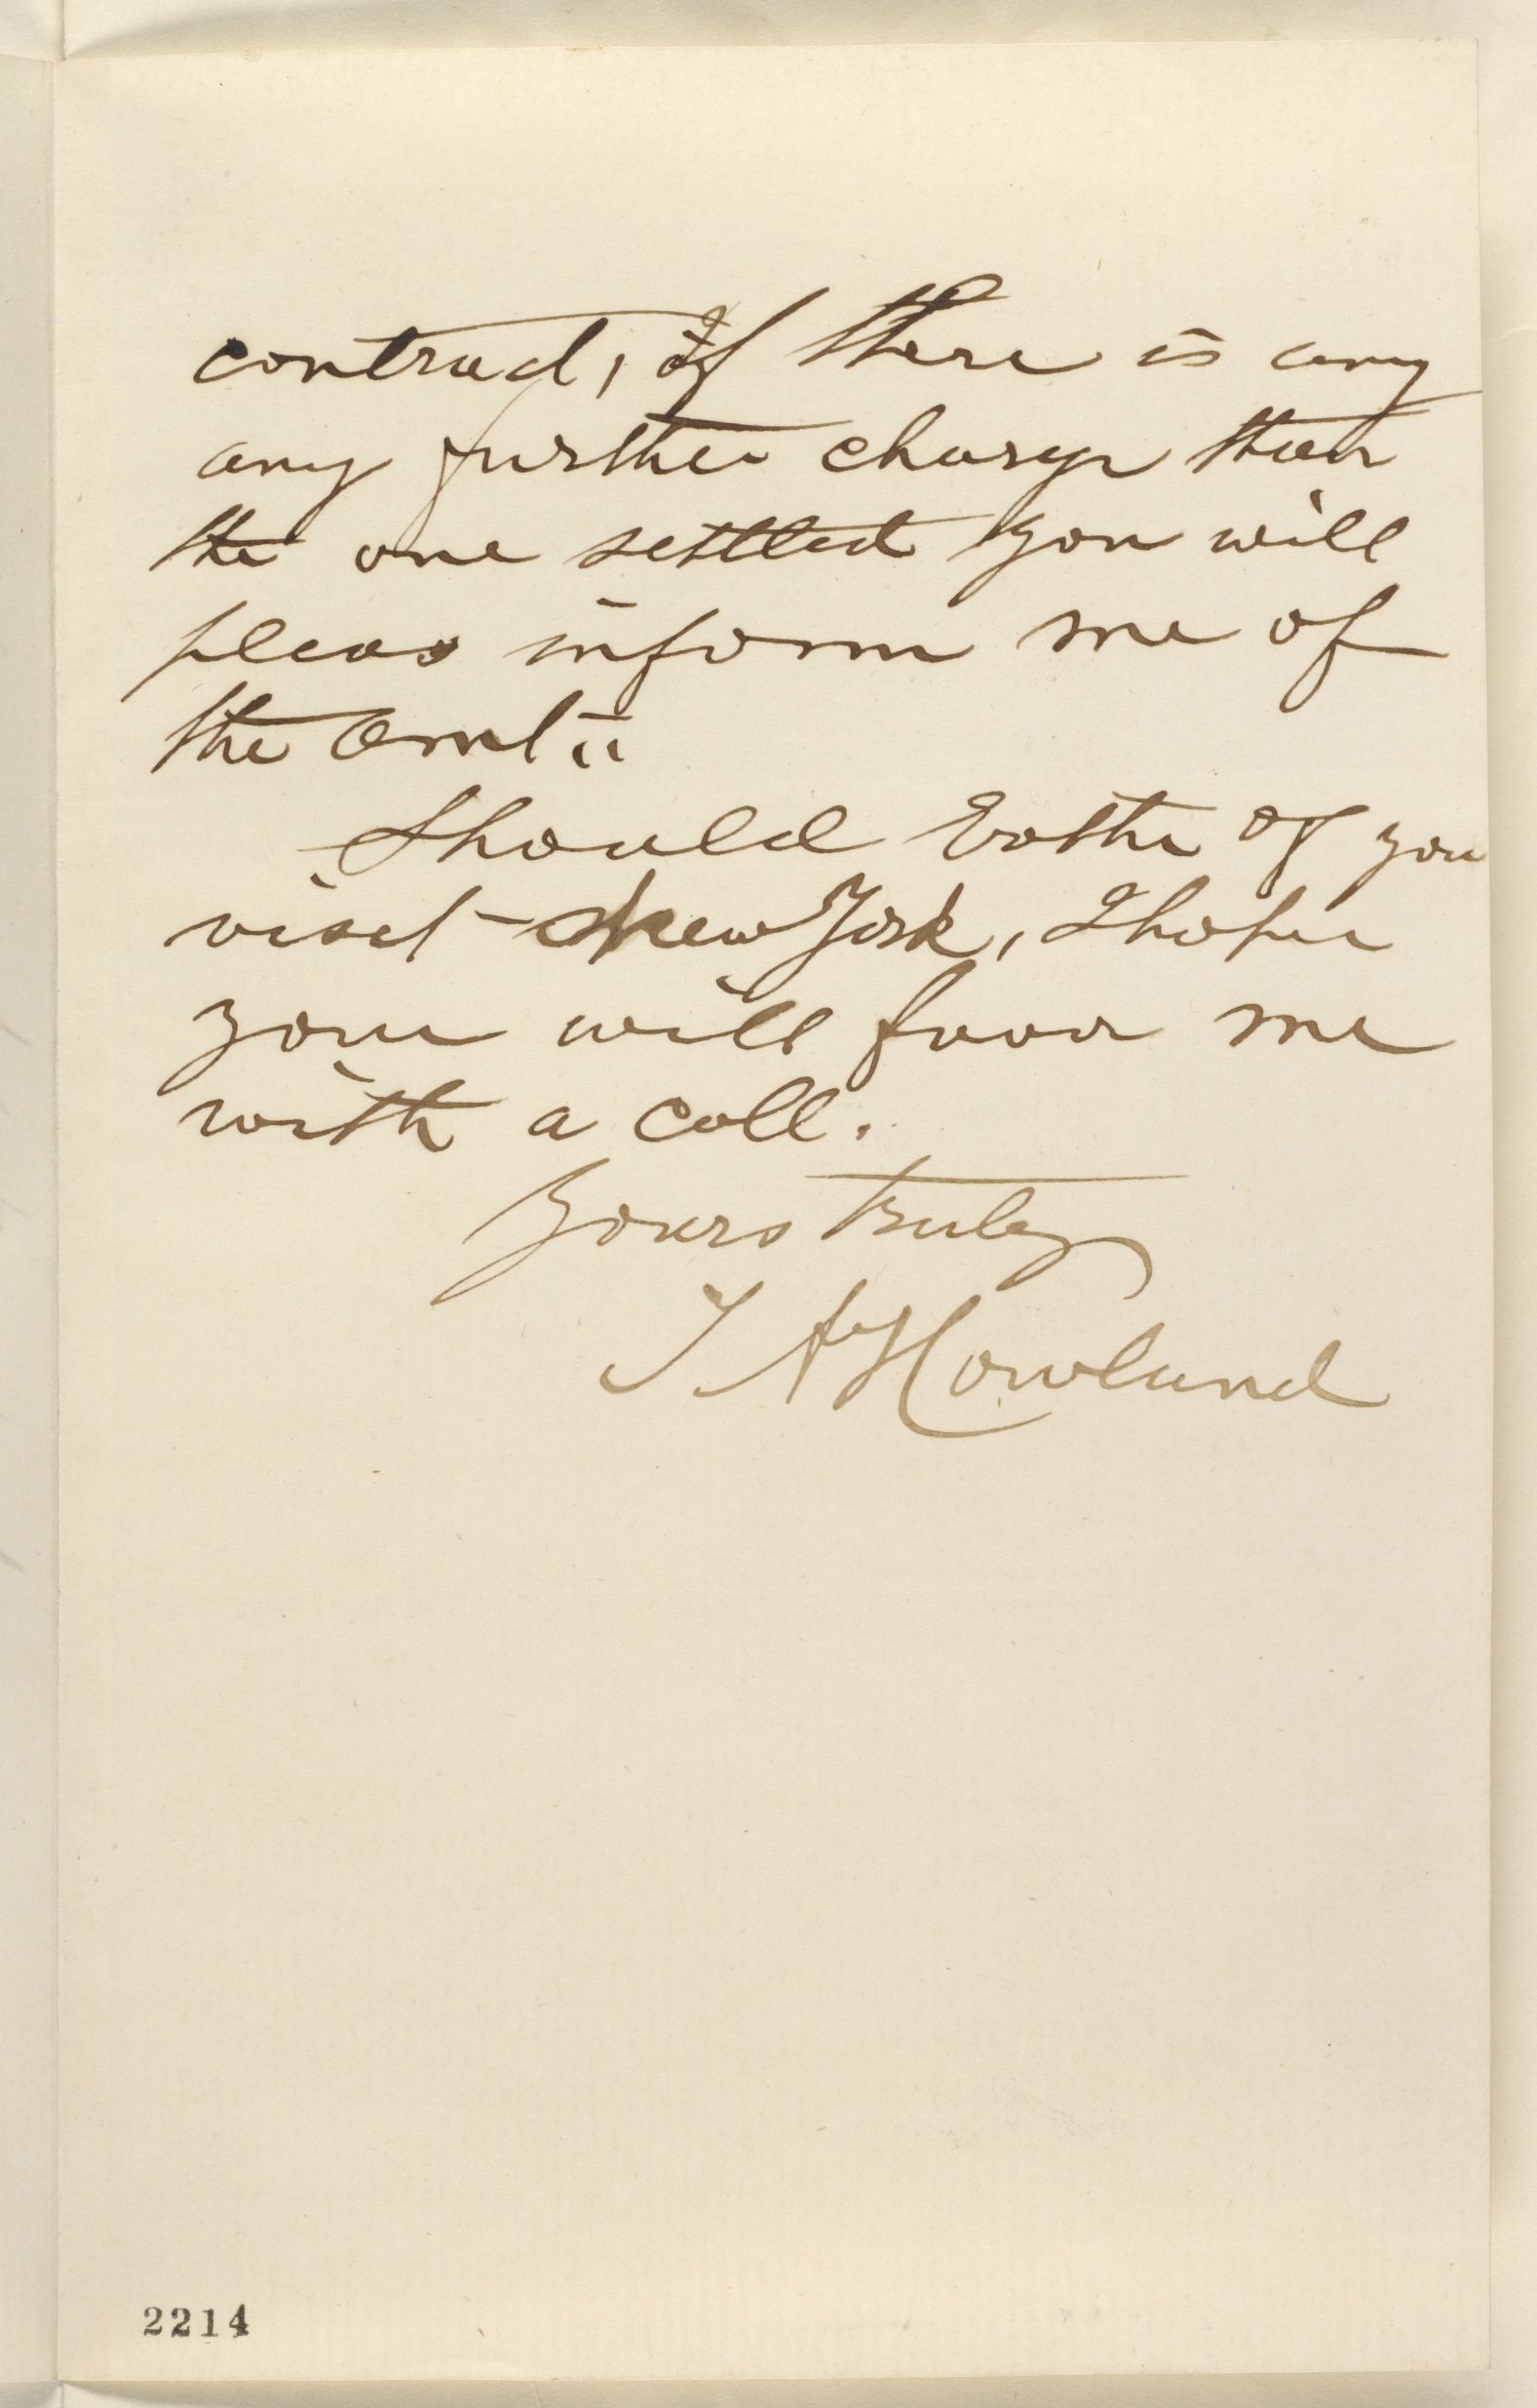 contract, if there is any
any further charge than
the one settled you will
pleas inform me of
the Amt
Should Eother of you
visit New York, I hope
you will favor me
with a call.
Yours truly
T A Howland
2214